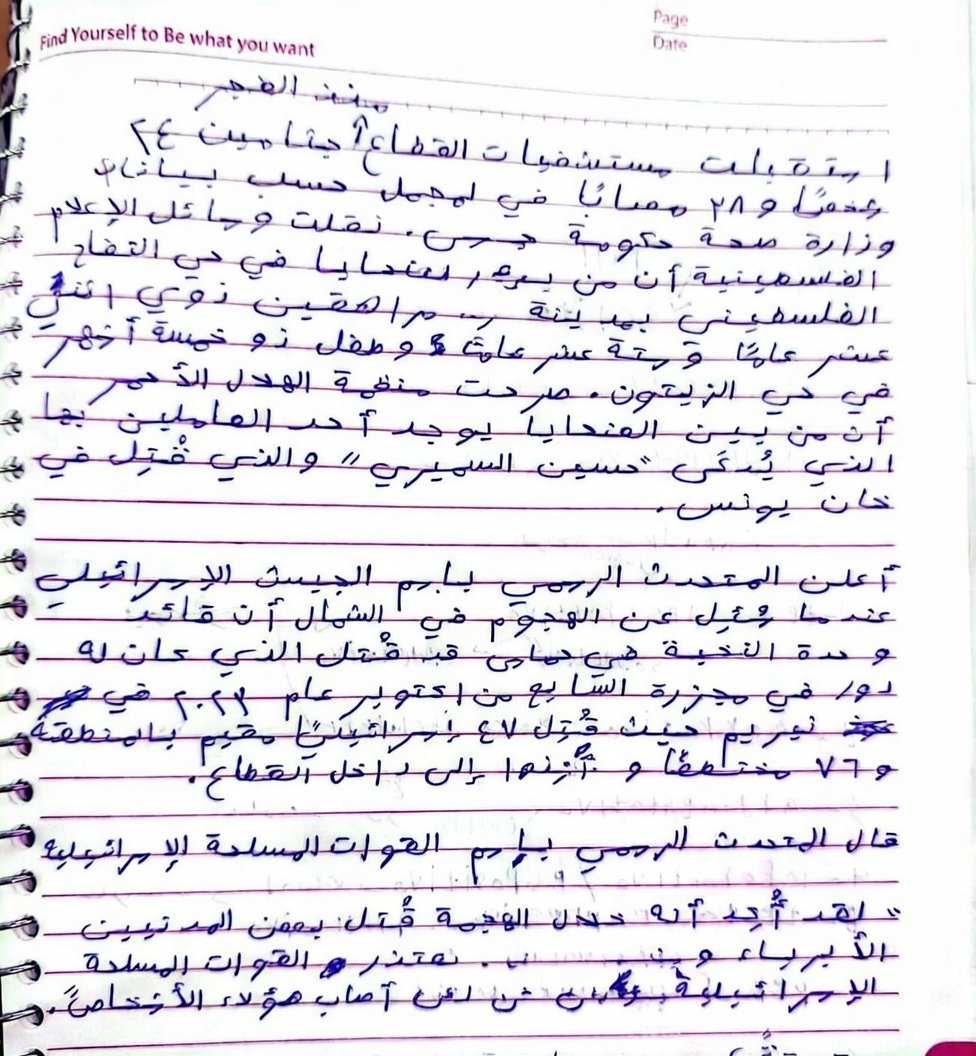 Find Yourself to Be what you want
Page
Date
منذ الفجر
استقبلت مستشفيات القطاع جثامين ٢٤
شخصًا و ٢٨ مصابًا في لمجمل حسب بيانات
وزارة صحة حكومة. نقلت وسائل الإعلام
الفلسطينية أن من بين الضحايا في حي التفاح
الفلسطيني بمدينة مراهقين ذوي اثني
عشر عامًا و ستة عشر عامًا و طفل ذو خمسة أشهر
في حي الزيتون. صرحت منظمة الهلال الأحمر
أن من بين الضحايا يوجد أحد العاملين بها
الذي يُدعَى "حسين السميري" والذي قُتِل في
خان يونس.
أعلن المتحدث الرسمي باسم الجيش الإسرائيلي
عندما سُئِل عن الهجوم في الشمال أن قائد
وحدة النخبة في حماس قد قُتل الذي كان له
دور في مجزرة السابع من اكتوبر عام ٢٠٢٣ في
نيريم حيث قُتِل ٤٧ إسرائيليًا مقيم بالمنطقة
و ٧٦ مختطفًا و أُخذوا إلى داخل القطاع.
قال المتحدث الرسمي باسم القوات المسلحة الإسرائيلية
"لقد أُكِد أنه خلال الهجمة قُتل بعض المدنيين
الأبرياء. نعتذر القوات المسلحة
الإسرائيلية عن أصاب هؤلاء الأشخاص.